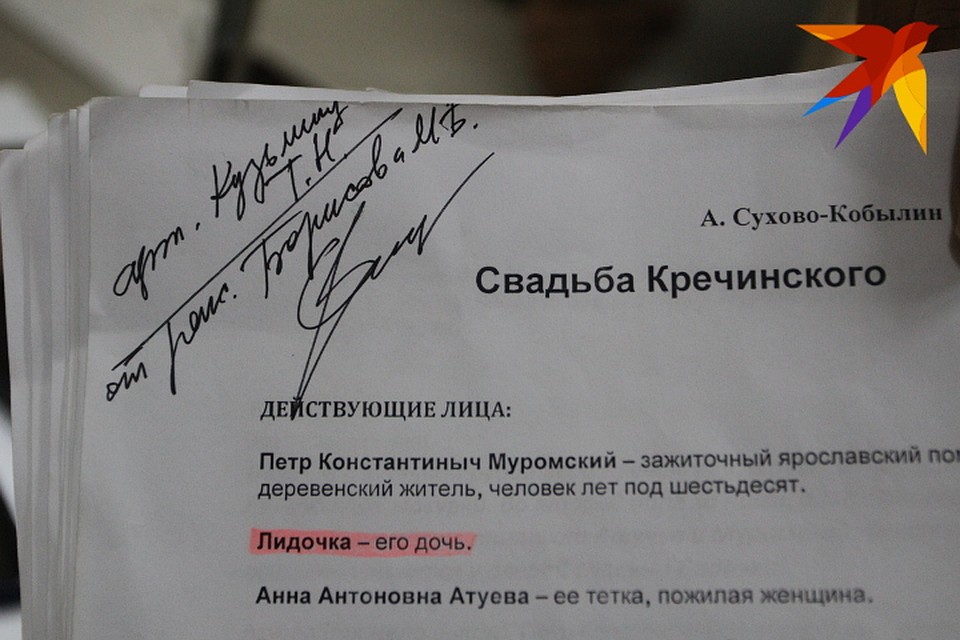 арт. Кузьмину
Т.Н.
от реж. Борисова М.Б.
А. Сухово-Кобылин
Свадьба Кречинского
ДЕЙСТВУЮЩИЕ ЛИЦА:
Петр Константиныч Муромский – зажиточный ярославский
деревенский житель, человек лет под шестьдесят.
Лидочка – его дочь.
Анна Антоновна Атуева – ее тетка, пожилая женщина.